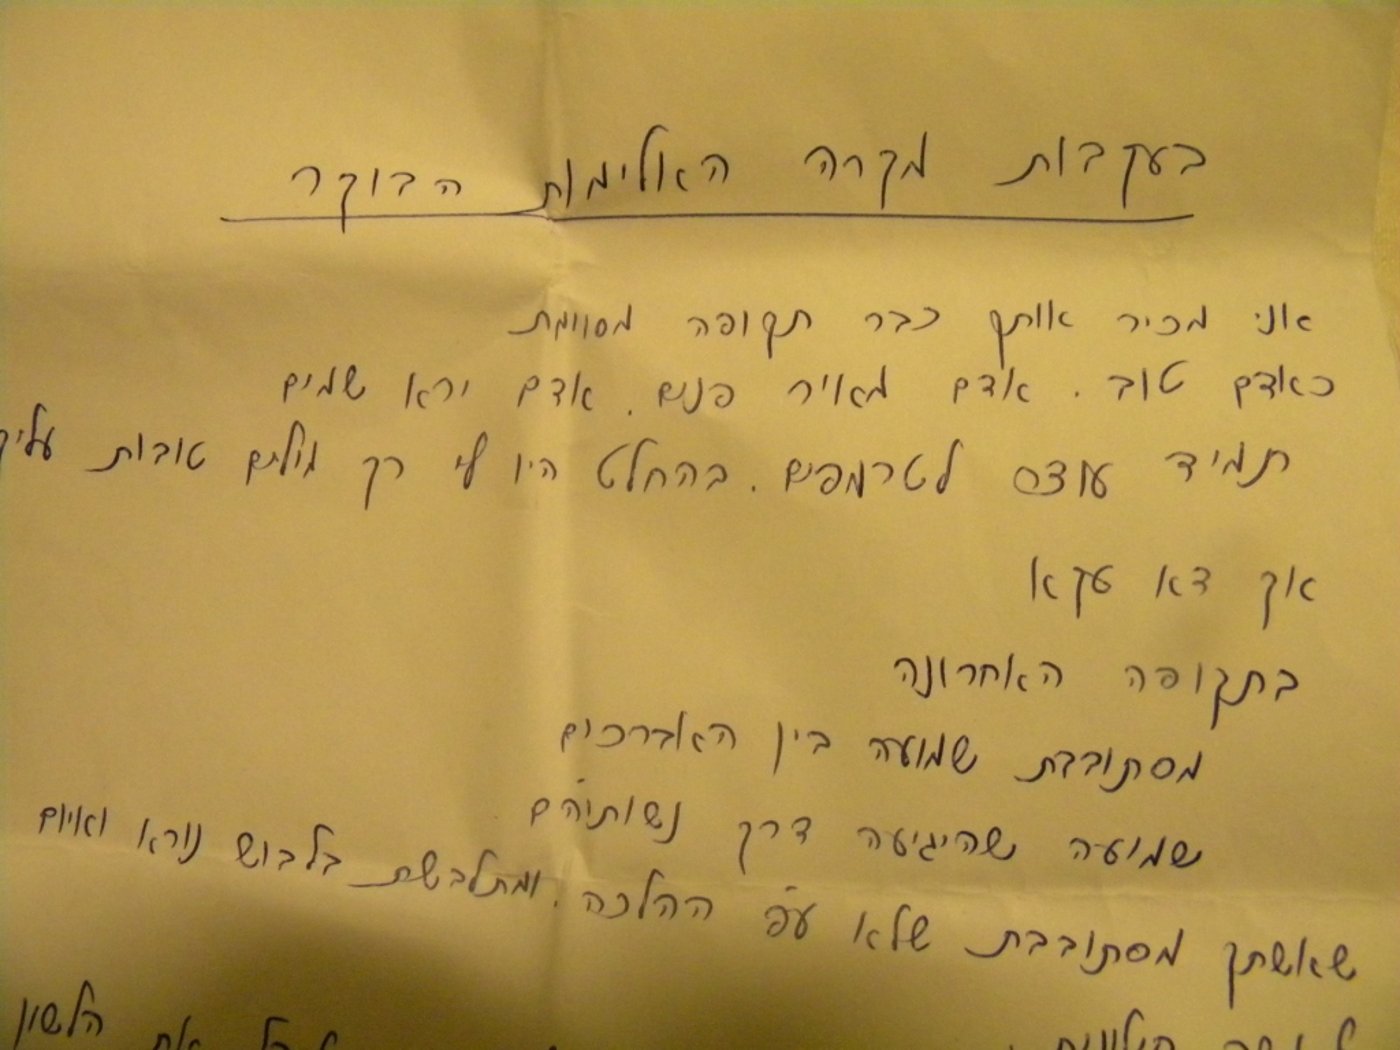 בעקבות מקרה האלימות הבוקר
אני מכיר אותך כבר תקופה מסוימת
כאדם טוב. אדם מאיר פנים. אדם ירא שמים
תמיד עוצר לטרמפים. בהחלט היו לי רק מילים טובות עליך
אך דא עקא
בתקופה האחרונה
מסתובבת שמועה בין האברכים
שמועה שהגיעה דרך נשותיהם
שאשתך מסתובבת שלא ע"פ ההלכה. ומתלבשת בלבוש נורא ואיום
את הלשון